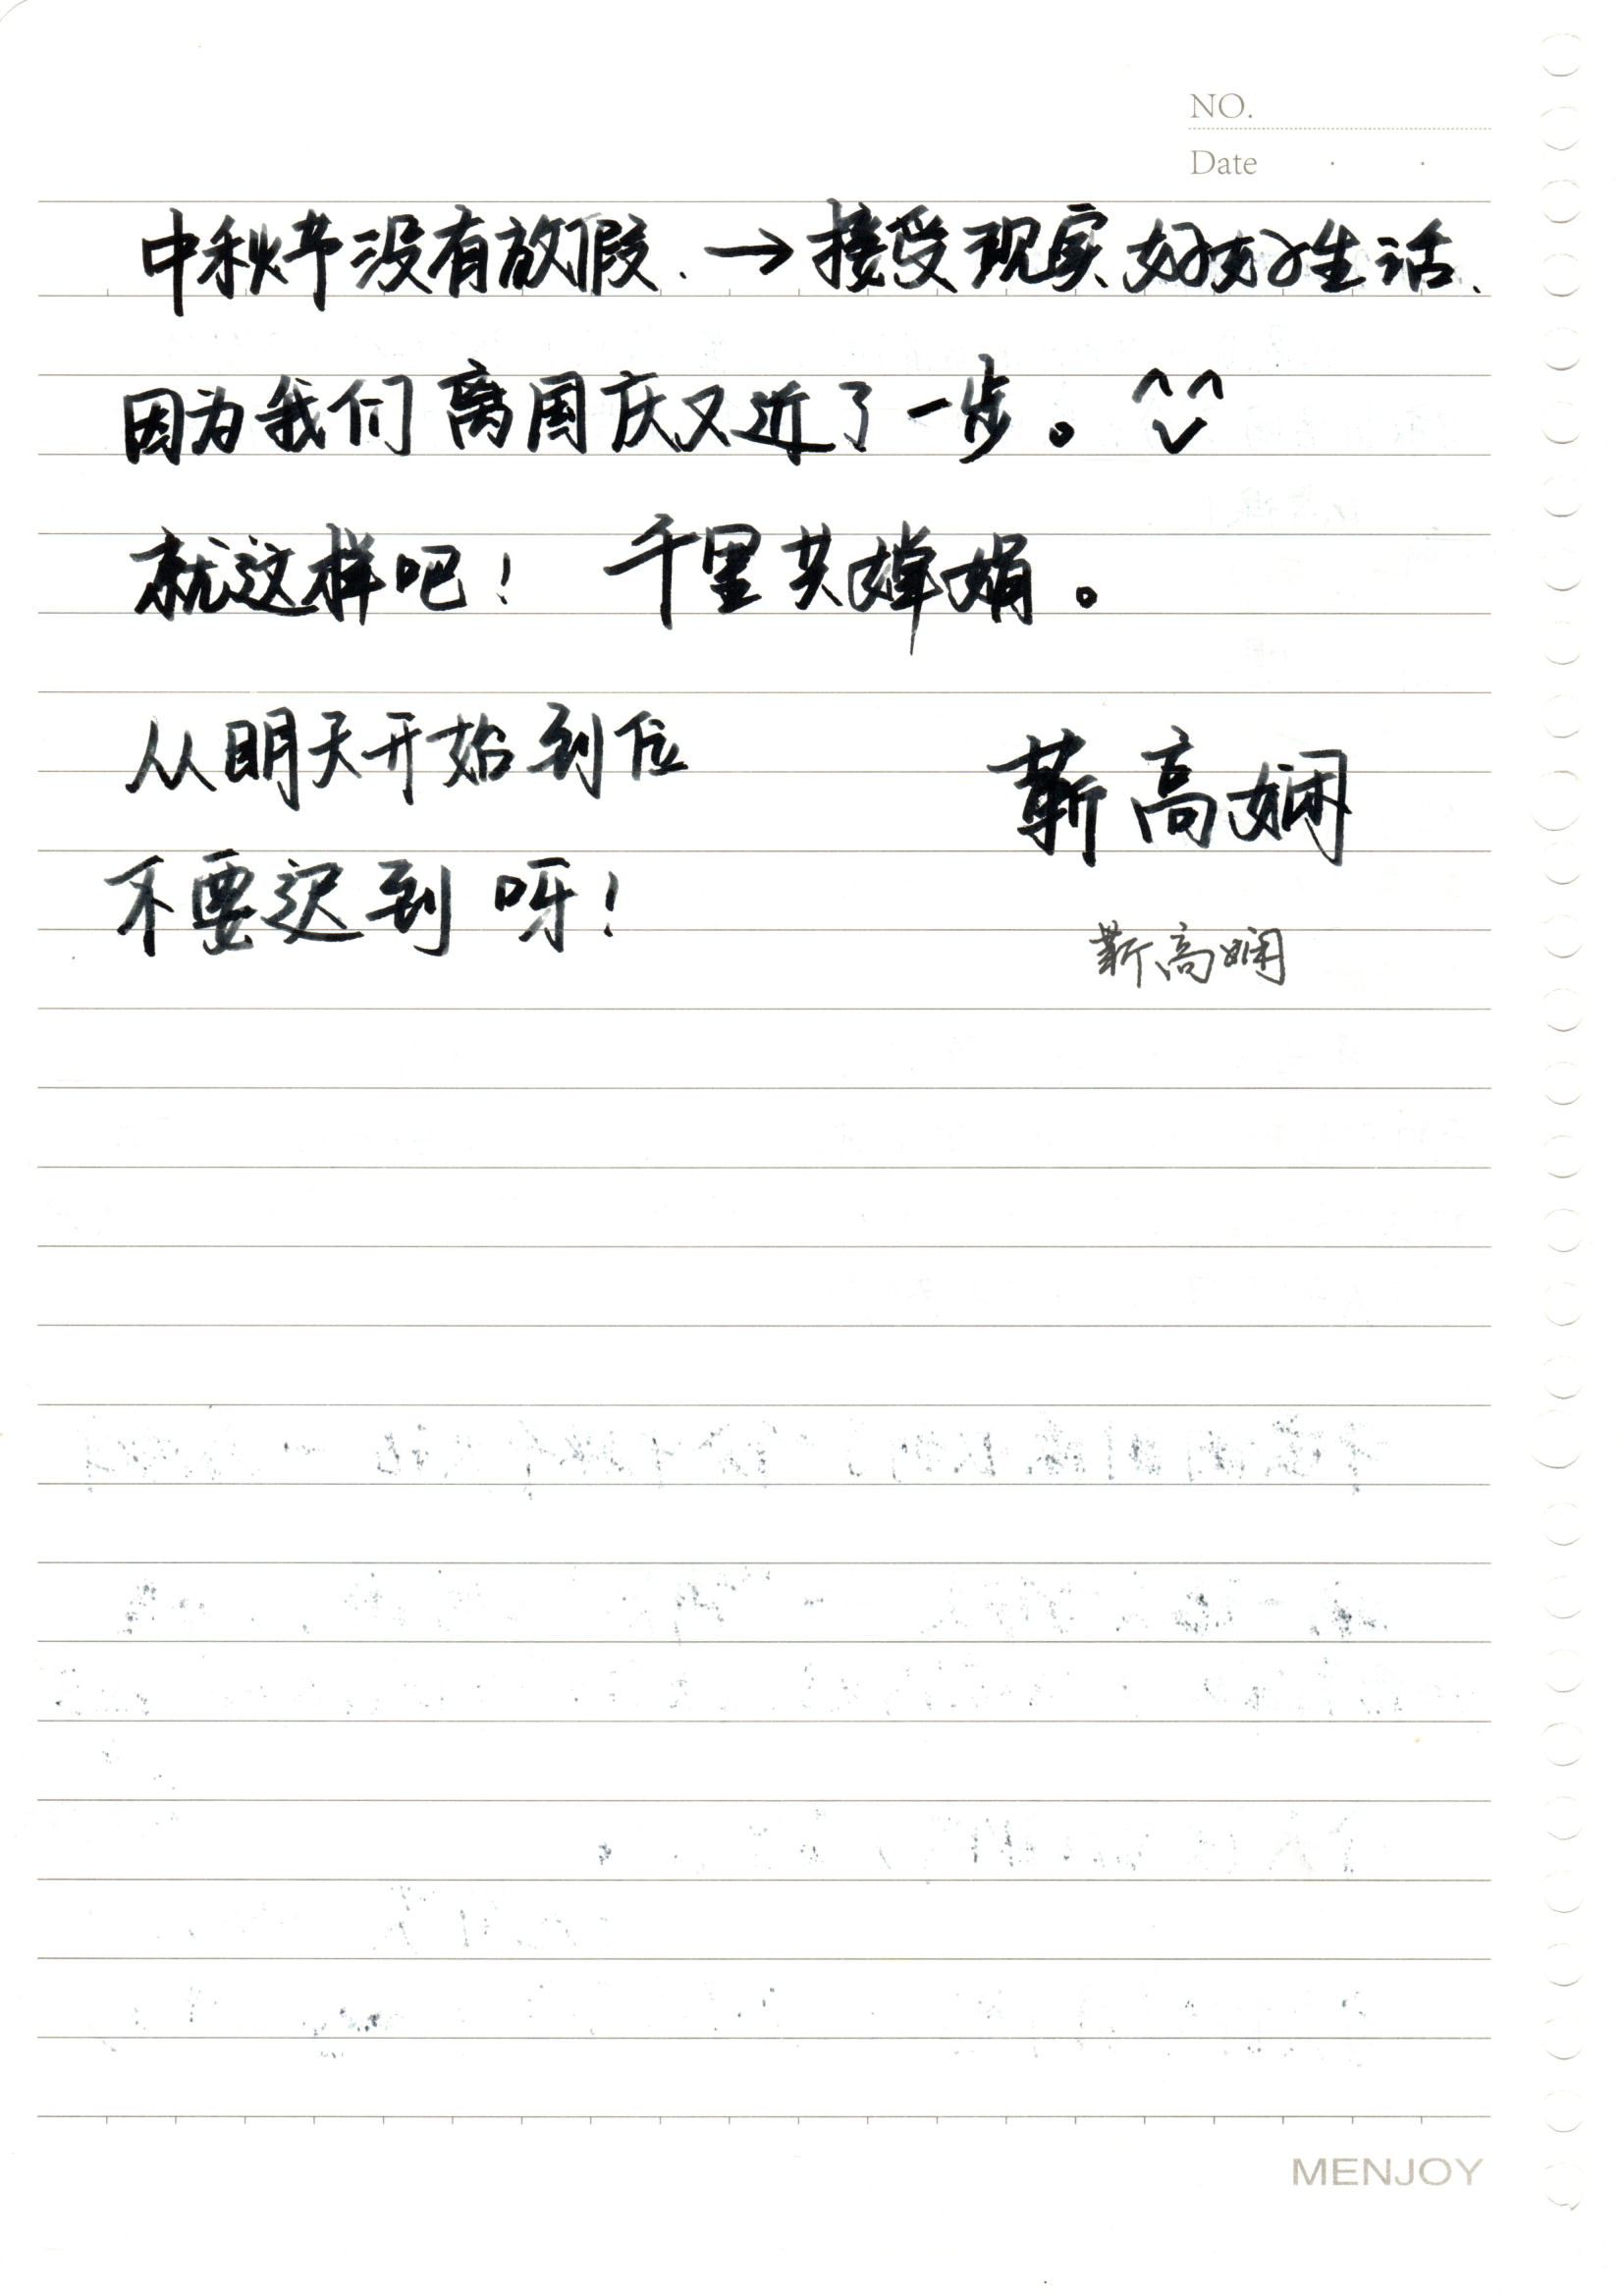 NO.
Date
中秋节没有放假.→接受现实好好生活.
因为我们离国庆又近了一步。^^
就这样吧! 千里共婵娟。
从明天开始到位
不要迟到呀!
靳高娴
靳高娴
MENJOY